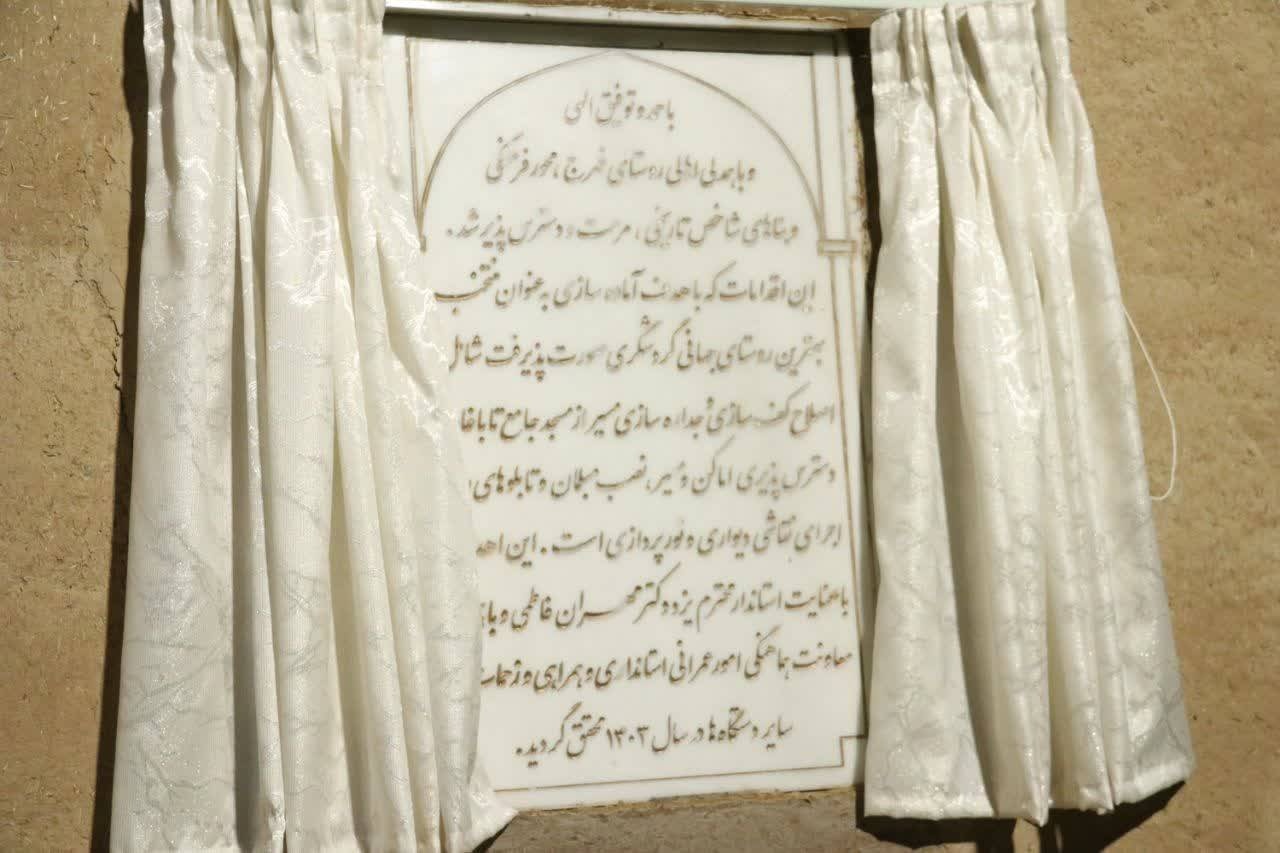 با حمد و توفیق الهی
و با همدلی اهالی روستای فهرج، محور فرهنگی
و بناهای شاخص تاریخی، مرمت و دسترس پذیر شد.
این اقدامات که با هدف آماده سازی به عنوان منتخب
بهترین روستای جهانی گردشگری صورت پذیرفت شامل
اصلاح کف سازی و جداره سازی مسیر از مسجد جامع تا باغ
دسترس پذیری اماکن و مسیر، نصب مبلمان و تابلوهای
اجرای نقاشی دیواری و نورپردازی است. این
با عنایت استاندار محترم یزد دکتر مهران فاطمی و
معاونت هماهنگی امور عمرانی استانداری و همراهی و زحمات
سایر دستگاه ها در سال ۱۴۰۳ محقق گردید.